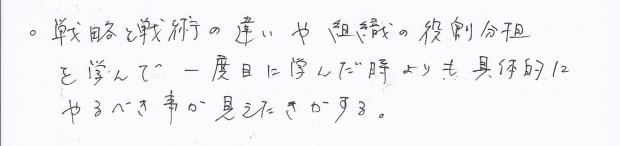 。戦略と戦術の違いや組織の役割分担
を学んで一度目に学んだ時よりも具体的に
やるべき事が見えたきがする。